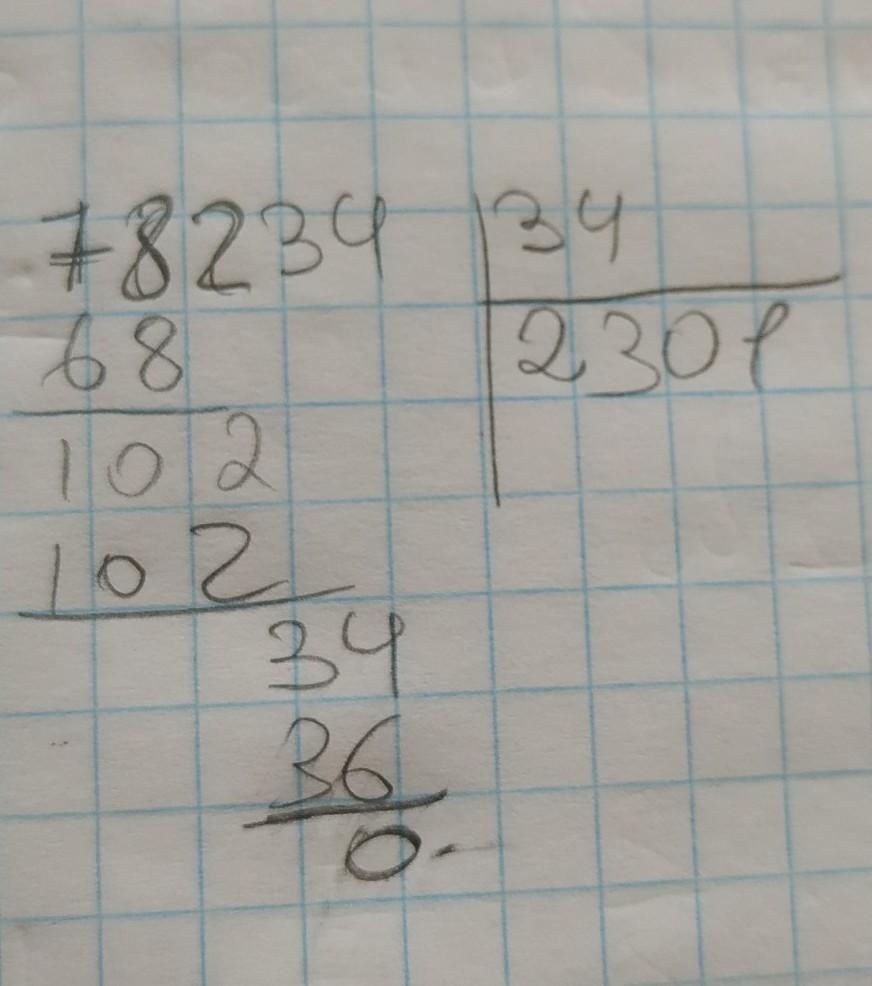 78234 34
68 2301
102
102
34
36
0